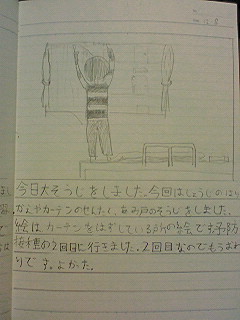 今日大そうじをしました。今回はしょうじのはり
かえやカーテンのせんたく、あみ戸のそうじをしました。
絵はカーテンをはずしている所の絵です。予防
接種の2回目に行きました。2回目なのでもうおわ
りです。よかた。